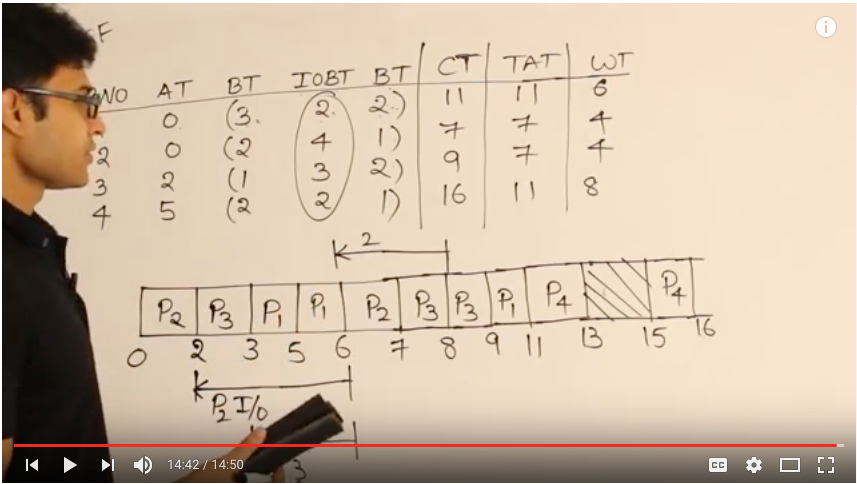 F
NO AT BT IOBT BT CT TAT WT
0 (3. 2. 2.) 11 11 6
2 0 (2 4 1) 7 7 4
3 2 (1 3 2) 9 7 4
4 5 (2 2 1) 16 11 8
2
P2 P3 P1 P1 P2 P3 P3 P1 P4 P4
0 2 3 5 6 7 8 9 11 13 15 16
P2 I/0
3
14:42 / 14:50
CC